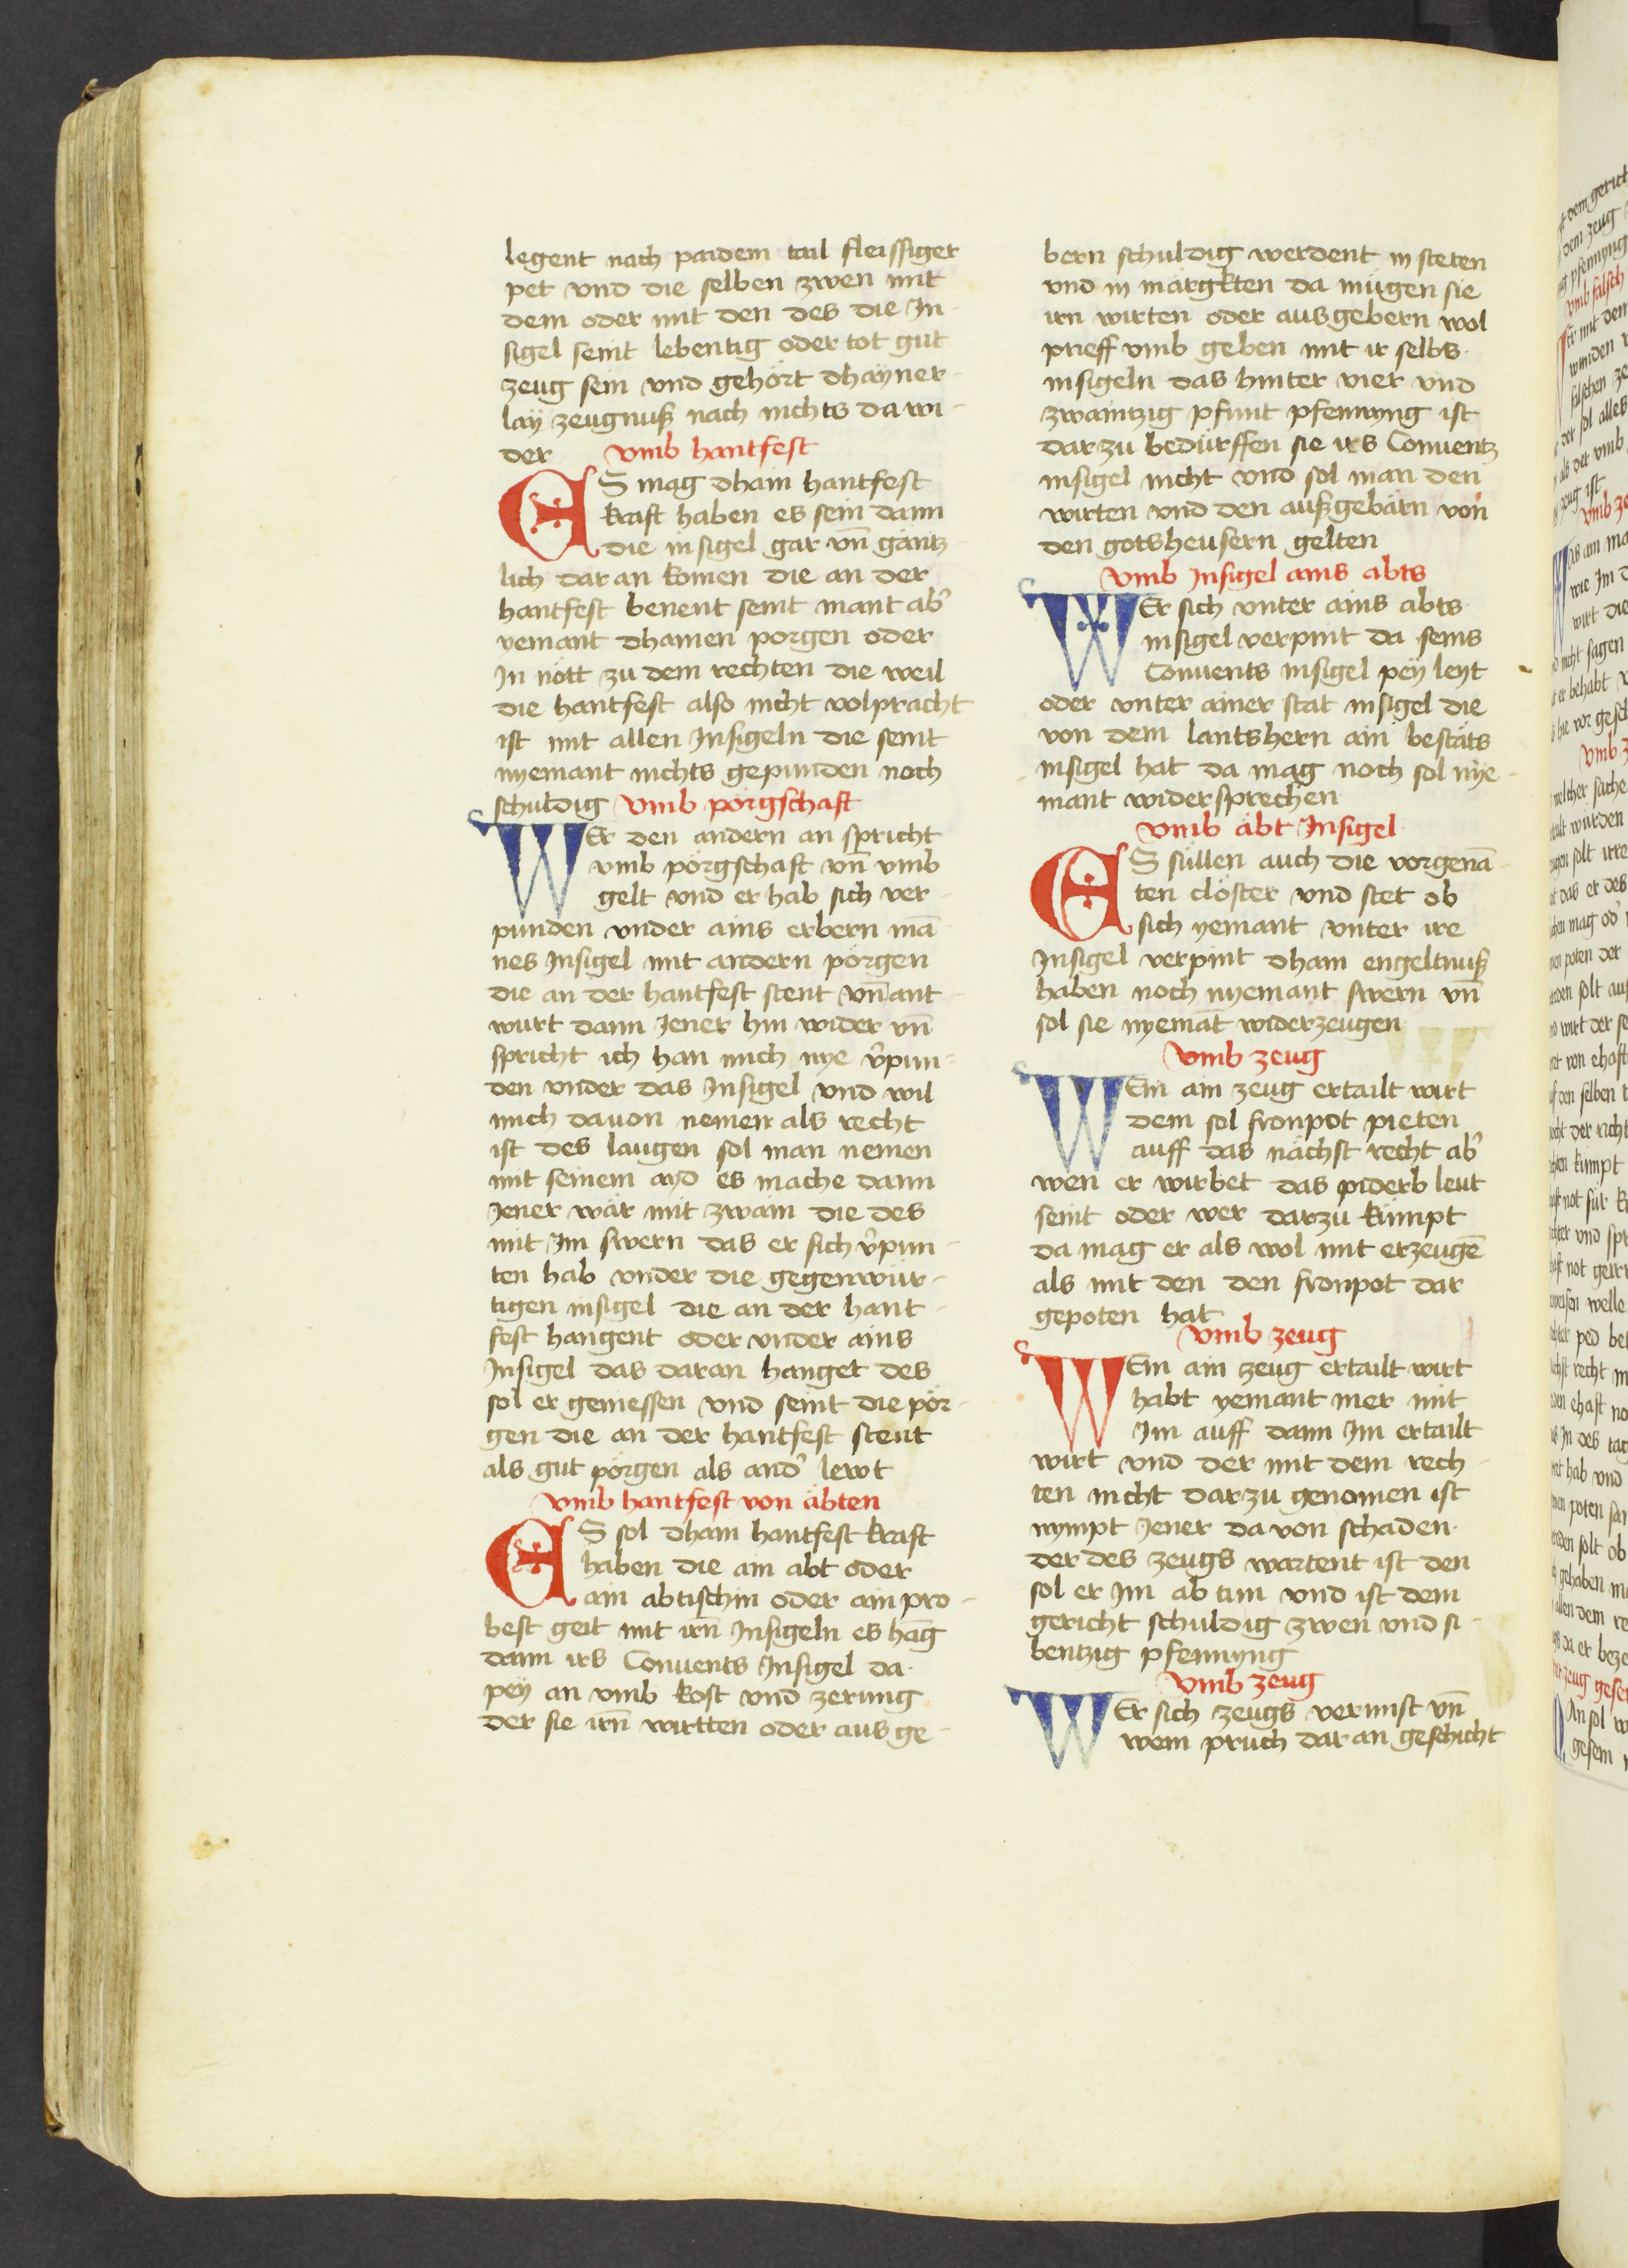 legent nach paidem tail fleissiger
pet vnd die selben zwen mit
dem oder mit den des die In-
sigel seint lebentig oder tot gut
zeug sein vnd gehört dhayner-
lay zeugnuß nach nichts da wi-
der vmb hantfest
ES mag dhain hantfest
kraft haben es sein dann
die insigel gar vn̄ gäntz-
lich dar an komen die an der
hantfest benent seint mant ab'
yemant dhainen porgen oder
In nött zu dem rechten die weil
die hantfest also nicht volpracht
ist mit allen Insigeln die seint
nyemant nichts gepunden noch
schuldig vmb pörgschaft
WEr den andern an spricht
vmb pörgschaft vn̄ vmb
gelt vnd er hab sich ver-
punden vnder ains erbern mā-
nes Insigel mit andern pörgen
die an der hantfest stent vn̄ ant-
wurt dann Jener hin wider vn̄
spricht ich han mich nye v̾pun-
den vnder das Insigel vnd wil
mich dauon nemen als recht
ist des laugen sol man nemen
mit seinem ayd es mache dann
Jener wär mit zwain die des
mit Im swern das er sich v̾pun-
ten hab vnder die gegenwür-
tigen insigel die an der hant-
fest hangent oder vnder ains
Insigel das daran hanget des
sol er geniessen vnd seint die pör-
gen die an der hantfest stent
als gut pörgen als and' lewt
vmb hantfest von äbten
ES sol dhain hantfest kraft
haben die ain abt oder
ain abtischin oder ain pro-
best geit mit irn̄ Insigeln es hāg
dann irs Conuents Insigel da-
pey an vmb kost vnd zerung
der sie irn̄ wirtten oder aus ge-
bern schuldig werdent in steten
vnd in märgkten da mügen sie
irn wirten oder ausgebern wol
prieff vmb geben mit ir selbs
insigeln das hinter vier vnd
zwaintzig pfunt pfennyng ist
darzu bedürffen sie irs Conuentz
insigel nicht vnd sol man den
wirten vnd den außgebärn von
den gotsheusern gelten
vmb Insigel ains abts
WEr sich vnter ains abts
insigel verpint da seins
Conuents insigel pey leyt
oder vnter ainer stat insigel die
von dem lantshern ain bestäts
insigel hat da mag noch sol nye-
mant widersprechen
vmb äbt Insigel
ES süllen auch die vorgenā-
ten clöster vnd stet ob
sich yemant vnter ire
Insigel verpint dhain engeltnuß
haben noch nyemant swern vn̄
sol sie nyemāt widerzeugen
vmb zeug
WEm ain zeug ertailt wirt
dem sol fronpot pieten
auff das nächst recht ab'
wen er wirbet das piderb leut
seint oder wer darzu kümpt
da mag er als wol mit erzeugē
als mit den den fronpot dar
gepoten hat
vmb zeug
WEm ain zeug ertailt wirt
habt yemant mer mit
Im auff dann Im ertailt
wirt vnd der mit dem rech-
ten nicht darzu genomen ist
nympt Jener da von schaden
der des zeugs wartent ist den
sol er Im ab tun vnd ist dem
gericht schuldig zwen vnd si-
bentzig pfennyng
vmb zeug
WEr sich zeugs vermist vn̄
wem pruch dar an geschicht